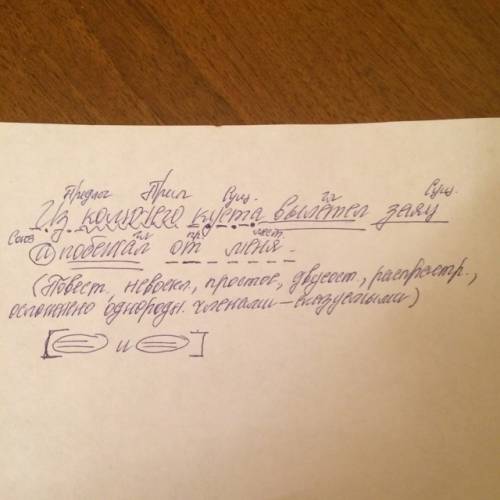 Предлог Прил Сущ. Гл Сущ.
Из колючего куста вылетел заяц
Союз Гл пр. мест.
и побежал от меня.
(Повест., невоскл., простое, двусост., распростр.,
осложнено однородн. членами – сказуемыми)
[ и ]